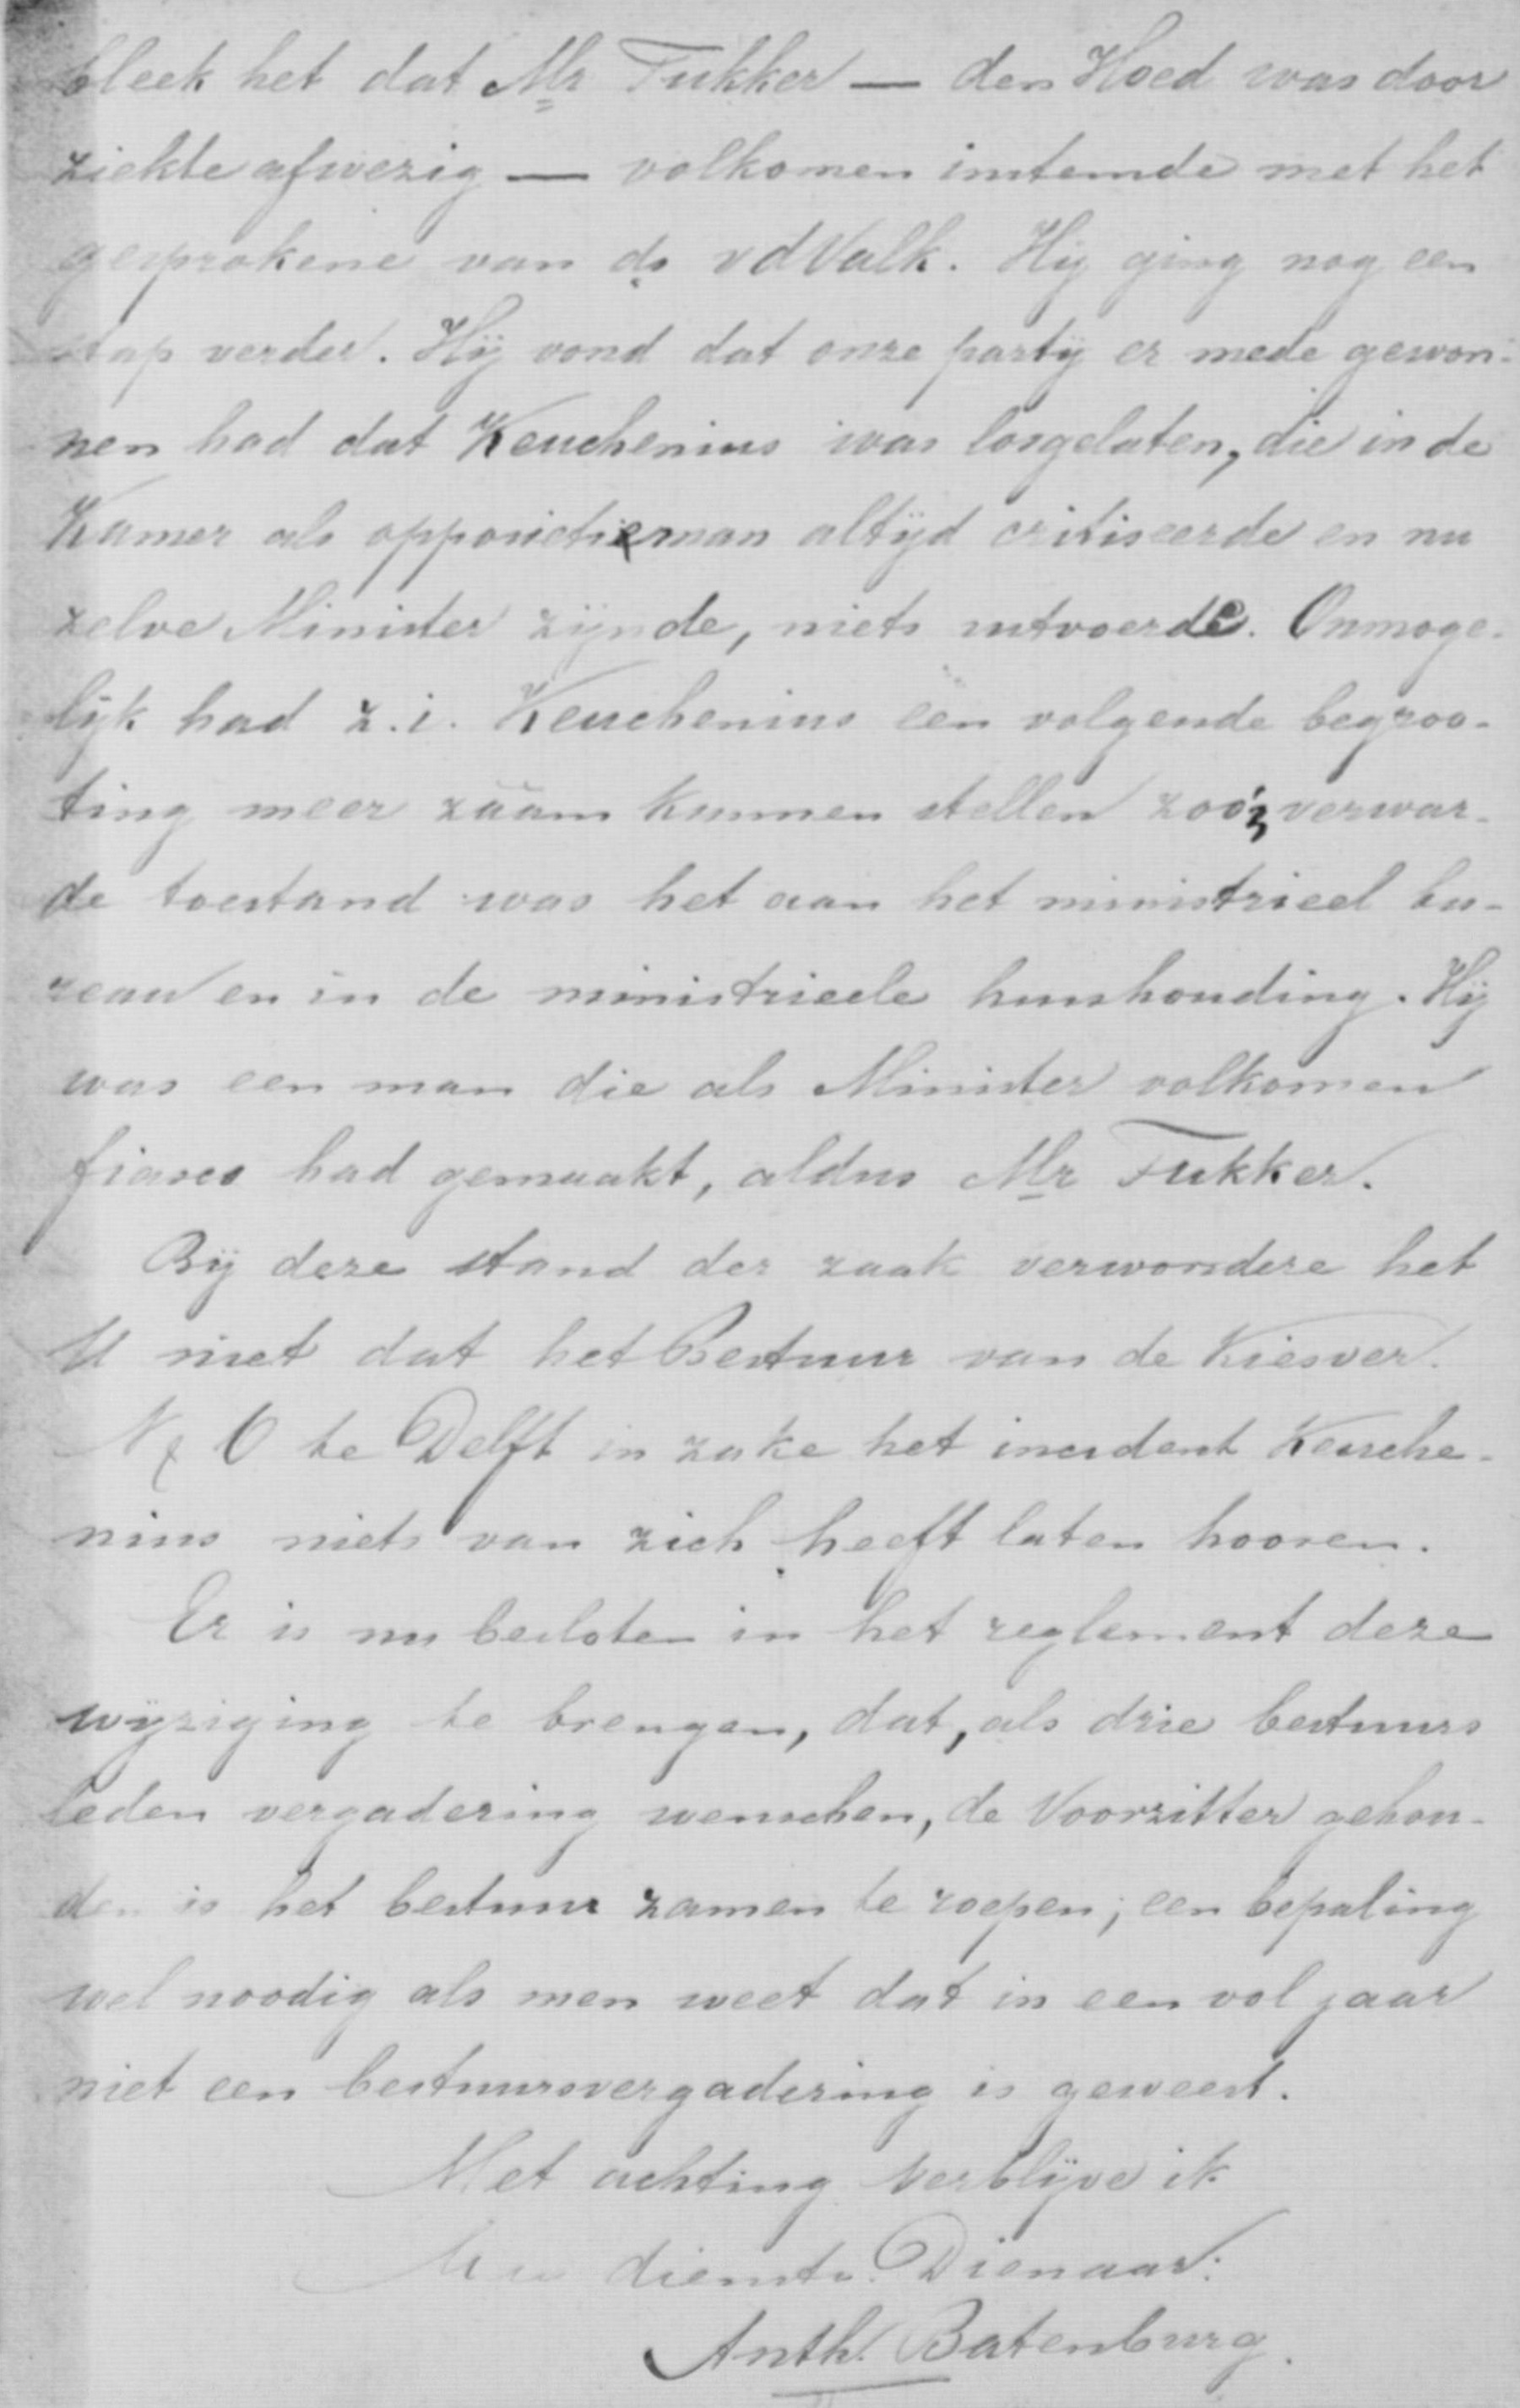 bleek het dat Mr Fukker — den Hoed was door
ziekte afwezig — volkomen instemde met het
gesprokene van ds vd Valk. Hij ging nog een
stap verder. Hij vond dat onze partij er mede gewon-
nen had dat Keuchenius was losgelaten, die in de
Kamer als oppositieman altijd critiseerde en nu
zelve Minister zijnde, niets uitvoerde. Onmoge-
lijk had z.i. Keuchenius een volgende begroo-
ting meer zaam kunnen stellen zoo'n verwar-
de toestand was het aan het ministrieel bu-
reau en in de ministrieele huishouding. Hij
was een man die als Minister volkomen
fiasco had gemaakt, aldus Mr Fukker.
Bij deze stand der zaak verwondere het
U niet dat het Bestuur van de Kiesver.
N & O te Delft in zake het incident Keuche-
nius niets van zich heeft laten hooren.
Er is nu besloten in het reglement deze
wijziging te brengen, dat, als drie bestuurs
leden vergadering wenschen, de Voorzitter gehou-
den is het bestuur zamen te roepen; een bepaling
wel noodig als men weet dat in een vol jaar
niet een bestuursvergadering is geweest.
Met achting verblijve ik
Uw dienstv. Dienaar:
Anth. Batenburg.